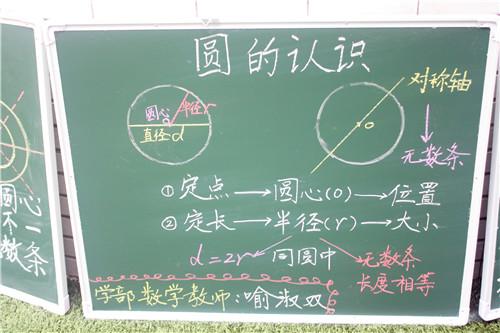 圆的认识
圆心o 半径r
直径d
对称轴
o
无数条
①定点→圆心(o)→位置
②定长→半径(r)→大小
d=2r 同圆中 无数条
长度相等
学部数学教师:喻淑双
圆心
不一
数条